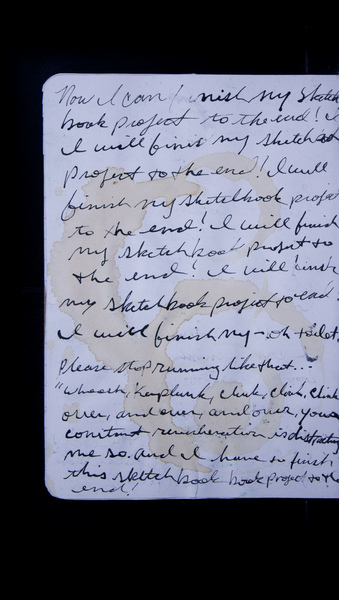 Now I can finish my sketch
book project to the end! I
I will finish my sketch
project to the end! I will
finish my sketchbook project
to the end! I will finish
my sketchbook project to
the end! I will finish
my sketchbook project to end.
I will finish my - oh toilet,
please stop running like that...
"Whoosh, Kerplunk, clink, clink, clink
over, and over, and over, your
constant reverberation is distracting
me so. And I have to finish
this sketch book book project to the
end!